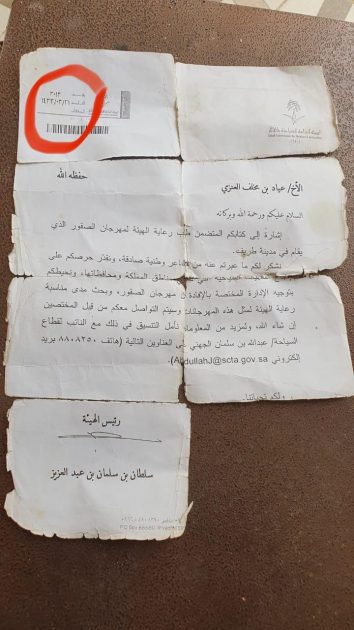 ٣٠١٣
١٤٣٢/٠٣/٢٦
الأخ/ عياد بن مخلف العنزي
حفظه الله
السلام عليكم ورحمة الله وبركاته
إشارة إلى كتابكم المتضمن طلب رعاية الهيئة لمهرجان الصقور الذي
يقام في مدينة طريف.
نشكر لكم ما عبرتم عنه من مشاعر وطنية صادقة، ونقدر حرصكم على
مناطق المملكة ومحافظاتها، ونحيطكم
بتوجيه الإدارة المختصة بالإفادة مهرجان الصقور، وبحث مدى مناسبة
رعاية الهيئة لمثل هذه المهرجانات وسيتم التواصل معكم من قبل المختصين
إن شاء الله، ولمزيد من المعلومات نأمل التنسيق في ذلك مع النائب لقطاع
السياحة/ عبدالله بن سلمان الجهني العناوين التالية (هاتف ٨٨٠٨٢٥٠ بريد
إلكتروني AbdullahJ@scta.gov.sa).
ولكم تحياتنا،
رئيس الهيئة
سلطان بن سلمان بن عبد العزيز